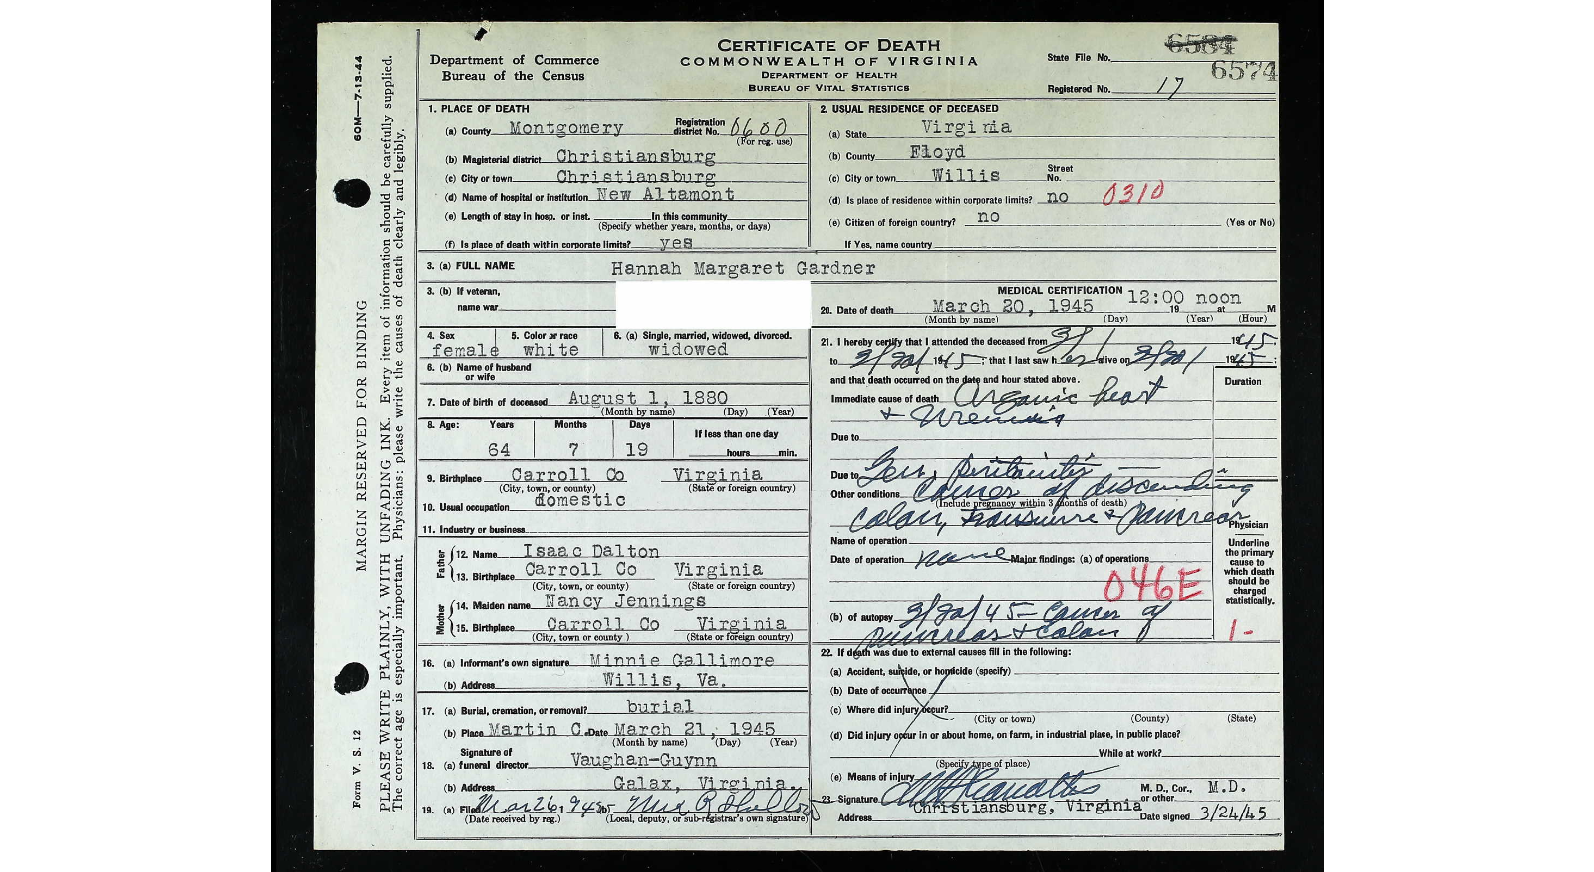 CERTIFICATE OF DEATH
COMMONWEALTH OF VIRGINIA
DEPARTMENT OF HEALTH
BUREAU OF VITAL STATISTICS
Department of Commerce
Bureau of the Census
State File No. 6584
6574
Registered No. 17
60M—7-13-44
MARGIN RESERVED FOR BINDING
PLEASE WRITE PLAINLY, WITH UNFADING INK. Every item of information should be carefully supplied.
The correct age is especially important. Physicians: please write the causes of death clearly and legibly.
Form V. S. 12
1. PLACE OF DEATH
(a) County Montgomery Registration district No. 0600
(For reg. use)
(b) Magisterial district Christiansburg
(c) City or town Christiansburg
(d) Name of hospital or institution New Altamont
(e) Length of stay in hosp. or inst. In this community
(Specify whether years, months, or days)
(f) Is place of death within corporate limits? yes
2. USUAL RESIDENCE OF DECEASED
(a) State Virginia
(b) County Floyd
(c) City or town Willis Street No.
(d) Is place of residence within corporate limits? no 0310
(e) Citizen of foreign country? no (Yes or No)
If Yes, name country
3. (a) FULL NAME Hannah Margaret Gardner
3. (b) If veteran,
name war
4. Sex female
5. Color or race white
6. (a) Single, married, widowed, divorced. widowed
6. (b) Name of husband
or wife
7. Date of birth of deceased August 1, 1880
(Month by name) (Day) (Year)
8. Age: Years Months Days If less than one day
64 7 19 hours min.
9. Birthplace Carroll Co Virginia
(City, town, or county) (State or foreign country)
10. Usual occupation domestic
11. Industry or business
Father
12. Name Isaac Dalton
13. Birthplace Carroll Co Virginia
(City, town, or county) (State or foreign country)
Mother
14. Maiden name Nancy Jennings
15. Birthplace Carroll Co Virginia
(City, town or county) (State or foreign country)
16. (a) Informant's own signature Minnie Gallimore
(b) Address Willis, Va.
17. (a) Burial, cremation, or removal? burial
(b) Place Martin C. Date March 21, 1945
(Month by name) (Day) (Year)
Signature of
18. (a) funeral director Vaughan-Guynn
(b) Address Galax, Virginia.
19. (a) Filed Mar 26, 1945 (b) Mrs
(Date received by reg.) (Local, deputy, or sub-registrar's own signature)
MEDICAL CERTIFICATION
20. Date of death March 20, 1945 19 at 12:00 noon M
(Month by name) (Day) (Year) (Hour)
21. I hereby certify that I attended the deceased from 3/1 1945.
to 3/20/ 1945; that I last saw her alive on 3/20/ 1945;
and that death occurred on the date and hour stated above. Duration
Immediate cause of death Organic heart
+ Uremia
Due to
Due to Gen. Peritonitis
Other conditions Cancer of descending
(Include pregnancy within 3 months of death)
colon, transverse + Pancreas
Physician
Underline the primary cause to which death should be charged statistically.
Name of operation
Date of operation none Major findings: (a) of operations
046E
(b) of autopsy 3/20/45 - Cancer of
pancreas + colon
1-
22. If death was due to external causes fill in the following:
(a) Accident, suicide, or homicide (specify)
(b) Date of occurrence
(c) Where did injury occur?
(City or town) (County) (State)
(d) Did injury occur in or about home, on farm, in industrial place, in public place?
While at work?
(Specify type of place)
(e) Means of injury
23. Signature M. D., Cor., or other M.D.
Address Christiansburg, Virginia Date signed 3/24/45